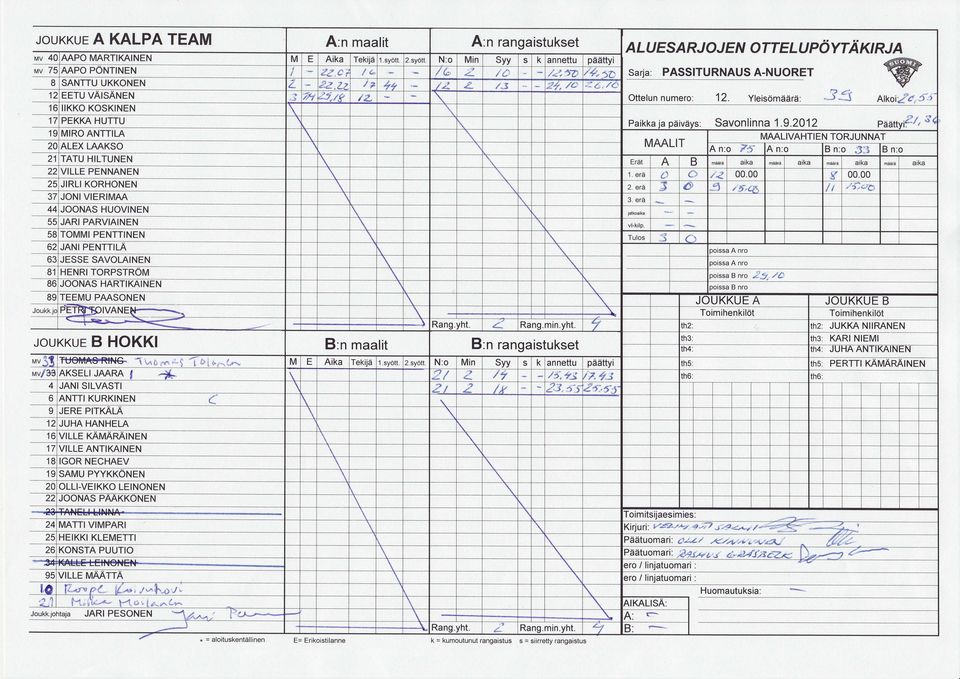 JOUKKUE A KALPA TEAM
MV 40 AAPO MARTIKAINEN
MV 75 AAPO PÖNTINEN
8 SANTTU UKKONEN
12 EETU VÄISÄNEN
16 IIKKO KOSKINEN
17 PEKKA HUTTU
19 MIRO ANTTILA
20 ALEX LAAKSO
21 TATU HILTUNEN
22 VILLE PENNANEN
25 JIRLI KORHONEN
37 JONI VIERIMAA
44 JOONAS HUOVINEN
55 JARI PARVIAINEN
58 TOMMI PENTTINEN
62 JANI PENTTILÄ
63 JESSE SAVOLAINEN
81 HENRI TORPSTRÖM
86 JOONAS HARTIKAINEN
89 TEEMU PAASONEN
Joukk.jo PETRI TOIVANEN
A:n maalit
M E Aika Tekijä 1.syött. 2.syött.
1 - 22.07 16 - -
2 - 22.22 17 44 -
3 29,18 12 - -
A:n rangaistukset
N:o Min Syy s k annettu päättyi
16 2 10 - - 12.50 14.50
12 2 13 - - 24,10 26,10
Rang.yht. 2 Rang.min.yht. 4
JOUKKUE B HOKKI
MV 33 TUOMAS RING Tuomas Tolanen
MV/33 AKSELI JAARA 1
4 JANI SILVASTI
6 ANTTI KURKINEN C
9 JERE PITKÄLÄ
12 JUHA HANHELA
16 VILLE KÄMÄRÄINEN
17 VILLE ANTIKAINEN
18 IGOR NECHAEV
19 SAMU PYYKKÖNEN
20 OLLI-VEIKKO LEINONEN
22 JOONAS PÄÄKKÖNEN
23 TANELI LINNA
24 MATTI VIMPARI
25 HEIKKI KLEMETTI
26 KONSTA PUUTIO
34 KALLE LEINONEN
95 VILLE MÄÄTTÄ
10 Roope
21 Miika Moilanen
Joukk.johtaja JARI PESONEN
* = aloituskentällinen
B:n maalit
M E Aika Tekijä 1.syött. 2.syött.
E= Erikoistilanne
B:n rangaistukset
N:o Min Syy s k annettu päättyi
21 2 14 - - 15.43 17.43
21 2 18 - - 23.55 25.55
Rang.yht. 2 Rang.min.yht. 4
k = kumoutunut rangaistus s = siirretty rangaistus
ALUESARJOJEN OTTELUPÖYTÄKIRJA
SUOMI
Sarja: PASSITURNAUS A-NUORET
Ottelun numero: 12. Yleisömäärä: 35 Alkoi: 20,55
Paikka ja päiväys: Savonlinna 1.9.2012 Päättyi:
MAALIT
MAALIVAHTIEN TORJUNNAT
A n:o 75 A n:o B n:o 33 B n:o
Erät A B määrä aika määrä aika määrä aika määrä aika
1. erä 0 0 12 00.00 8 00.00
2. erä 3 0 9 15,00 11 15,00
3. erä - -
jatkoaika - -
vl-kilp. - -
Tulos 3 0
poissa A nro
poissa A nro
poissa B nro 29,10
poissa B nro
JOUKKUE A
Toimihenkilöt
th2:
th3:
th4:
th5:
th6:
JOUKKUE B
Toimihenkilöt
th2: JUKKA NIIRANEN
th3: KARI NIEMI
th4: JUHA ANTIKAINEN
th5: PERTTI KÄMÄRÄINEN
th6:
Toimitsijaesimies:
Kirjuri:
Päätuomari: OLLI KINNUNEN
Päätuomari: RASMUS GRÄSBECK
ero / linjatuomari :
ero / linjatuomari :
Huomautuksia: -
AIKALISÄ:
A: -
B: -